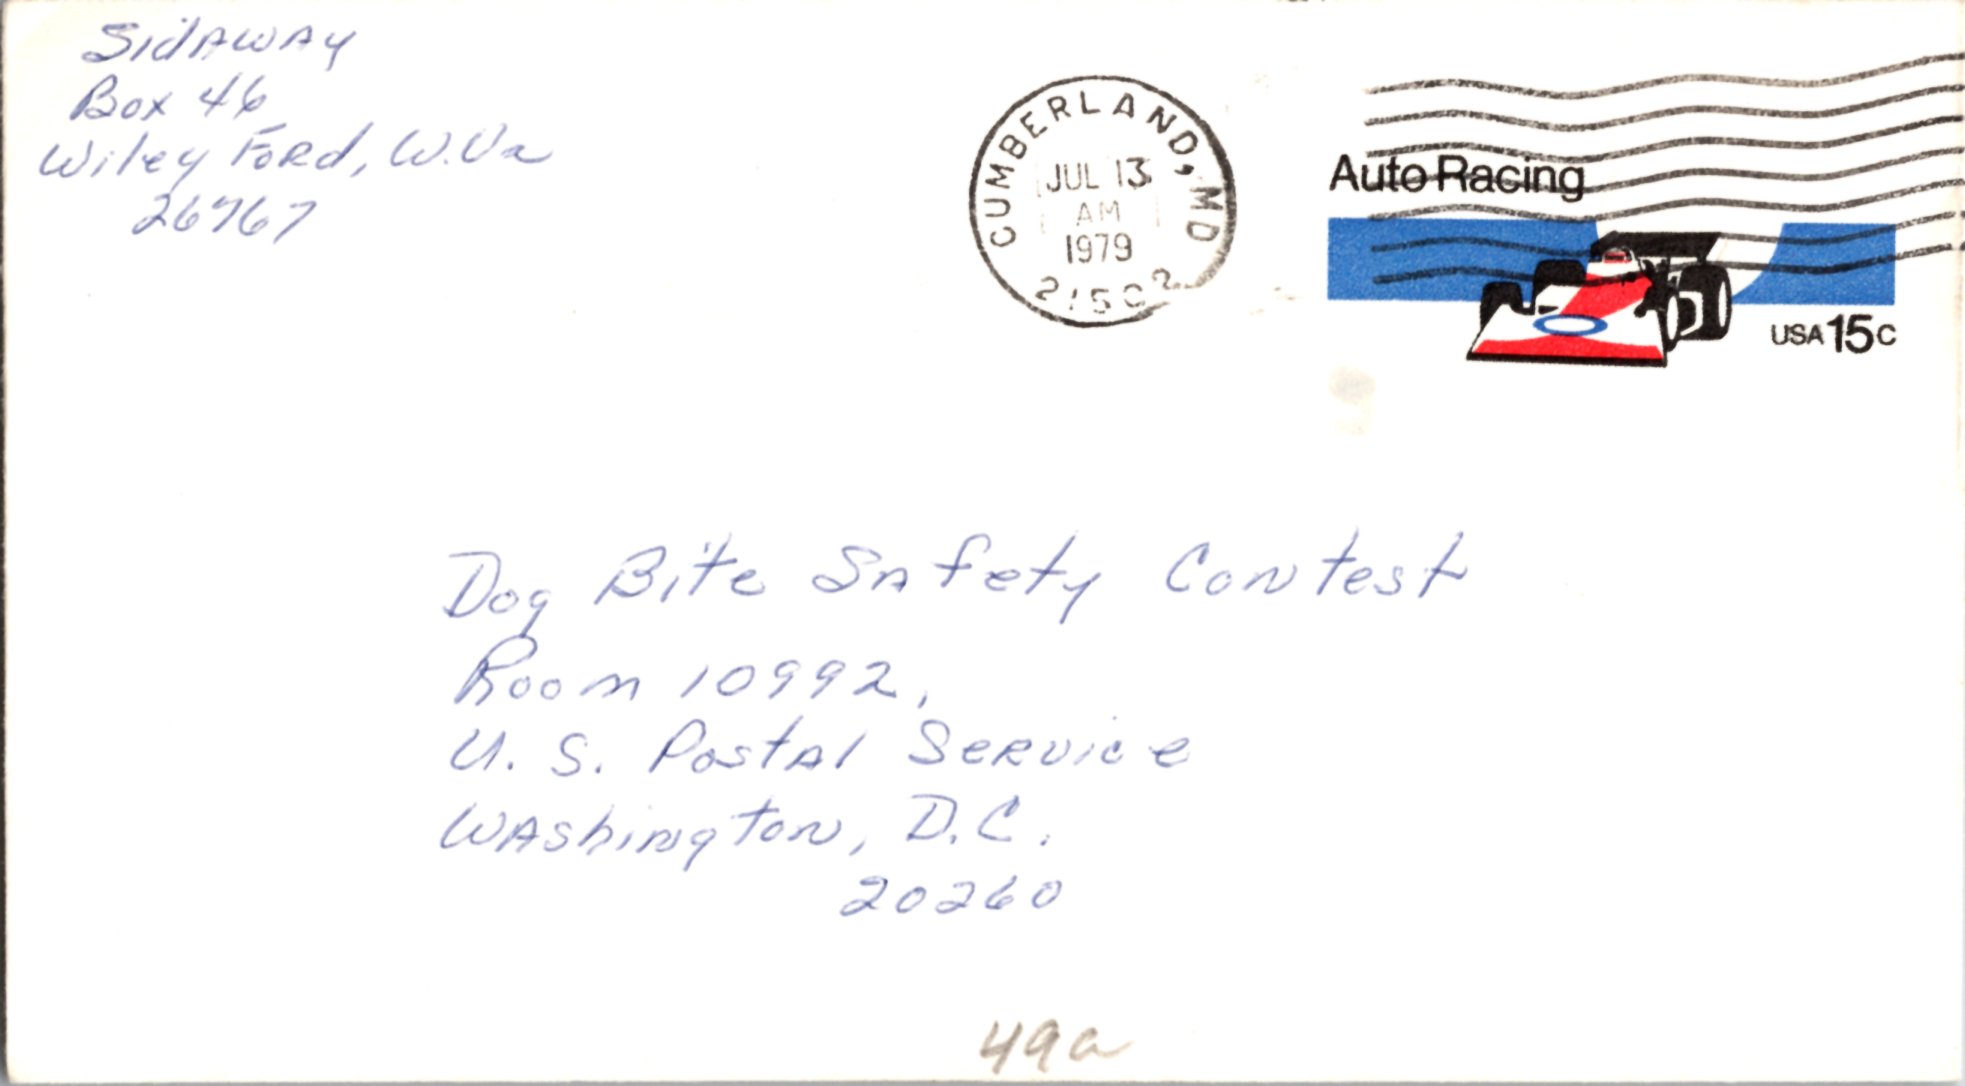 Sidaway
Box 46
Wiley Ford, W.Va
26767
CUMBERLAND, MD
JUL 13
AM
1979
21502
Auto Racing
USA 15c
Dog Bite Safety Contest
Room 10992,
U. S. Postal Service
Washington, D.C.
20260
49a